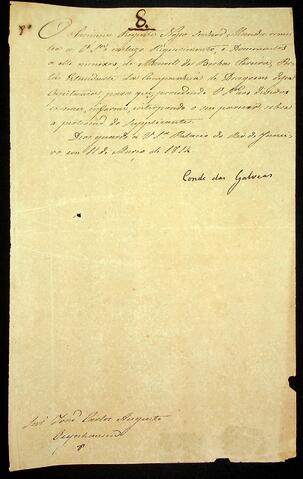 8.
O Principe Regente Nosso Senhor, Manda remet-
ter a V. S.ª o incluso Requerimento, e Documentos
a elle annexos de Manoel de Barbas Pereira, Por-
ta Estandarte da Companhia de Dragoens dessa
Capitania; para que procedendo V. S.ª aos devidos
exames, informe, interpondo o seu parecer sobre
a pertenção do Supplicante.
Deos guarde a V. S.ª Palacio do Rio de Janei-
ro em 11 de Março de 1812
Conde das Galveas
Snr. João Carlos Augusto
Oeynhausen